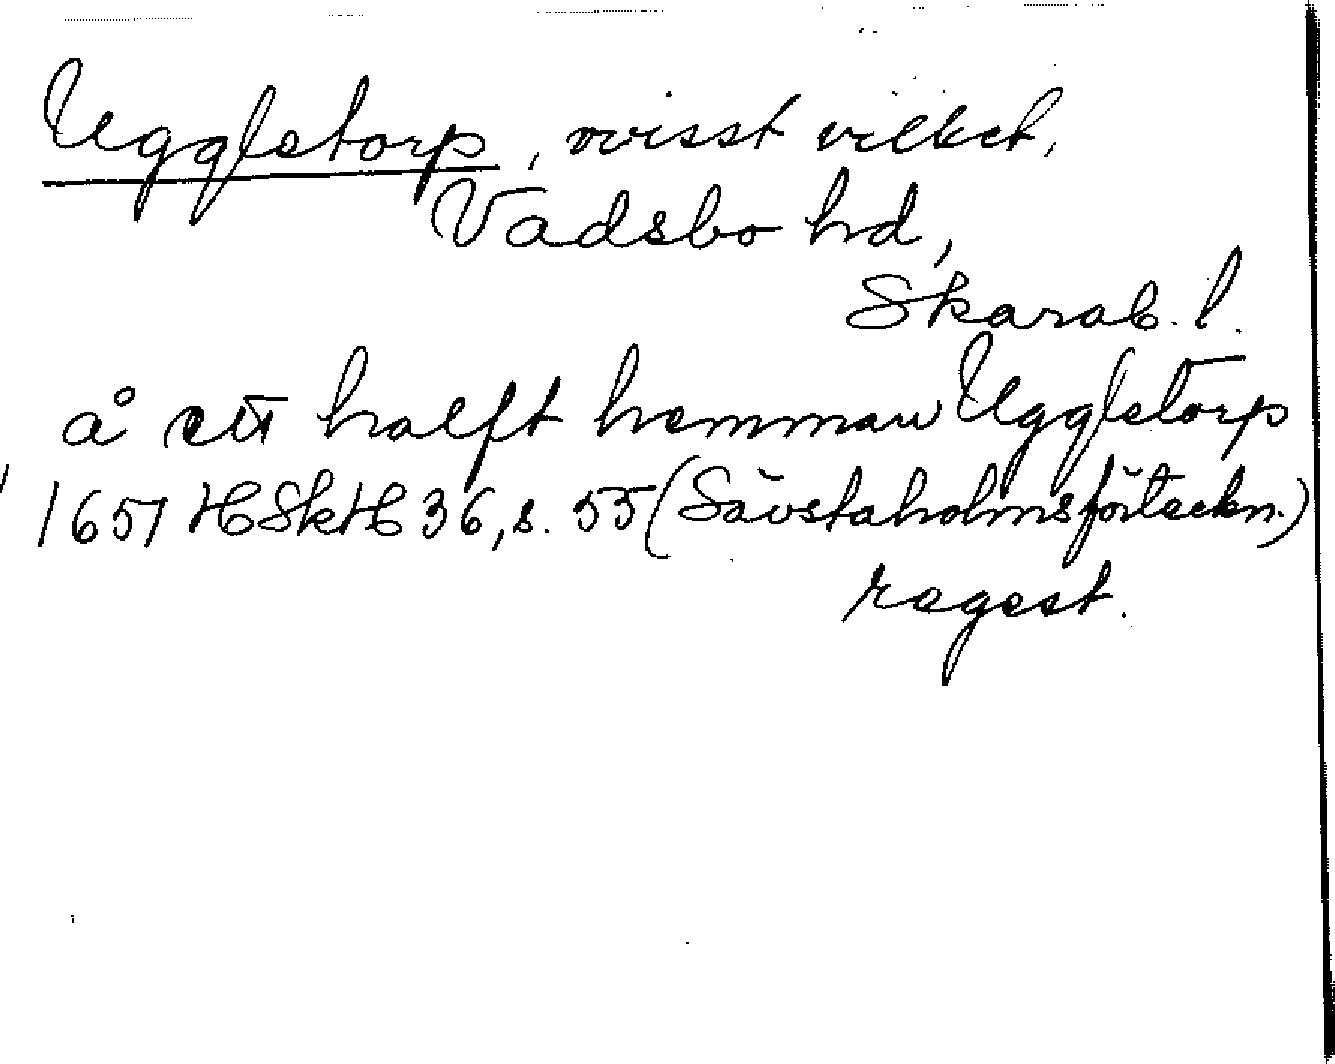 Uggletorp, ovisst vilket,
Vadsbo hd,
Skarab. l.
å ett halft hemman Uggletorp
1657 HSkH 36, s. 55 (Sävstaholmsförteckn.)
regest.